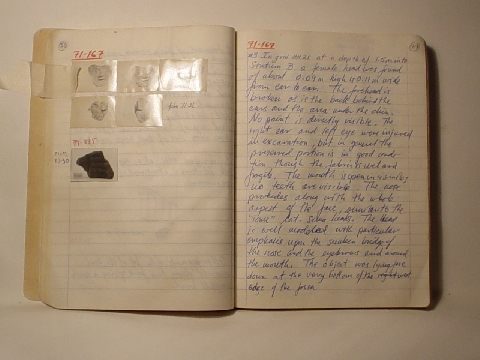 71-167
from H-26
71-235
71-167
#3 In grid H1-26 at a depth of
Stratum B a female head was found
of about 0.09m. high & 0.11 m wide
from ear to ear. The forehead is
broken as is the back behind the
ears and the area under the chin.
No paint is directly visible. The
right ear and left eye were injured
in excavation, but in general the
preserved portion is in good condi-
tion though the fabric is wet and
fragile. The mouth is open
no teeth are visible. The nose
protrudes along with the whole
aspect of the face, similar to the
heads. The head
is well modeled with particular
emphasis upon the sunken bridge of
the nose and the eyebrows and around
the mouth. The object was lying face
down at the very bottom of the
edge of the